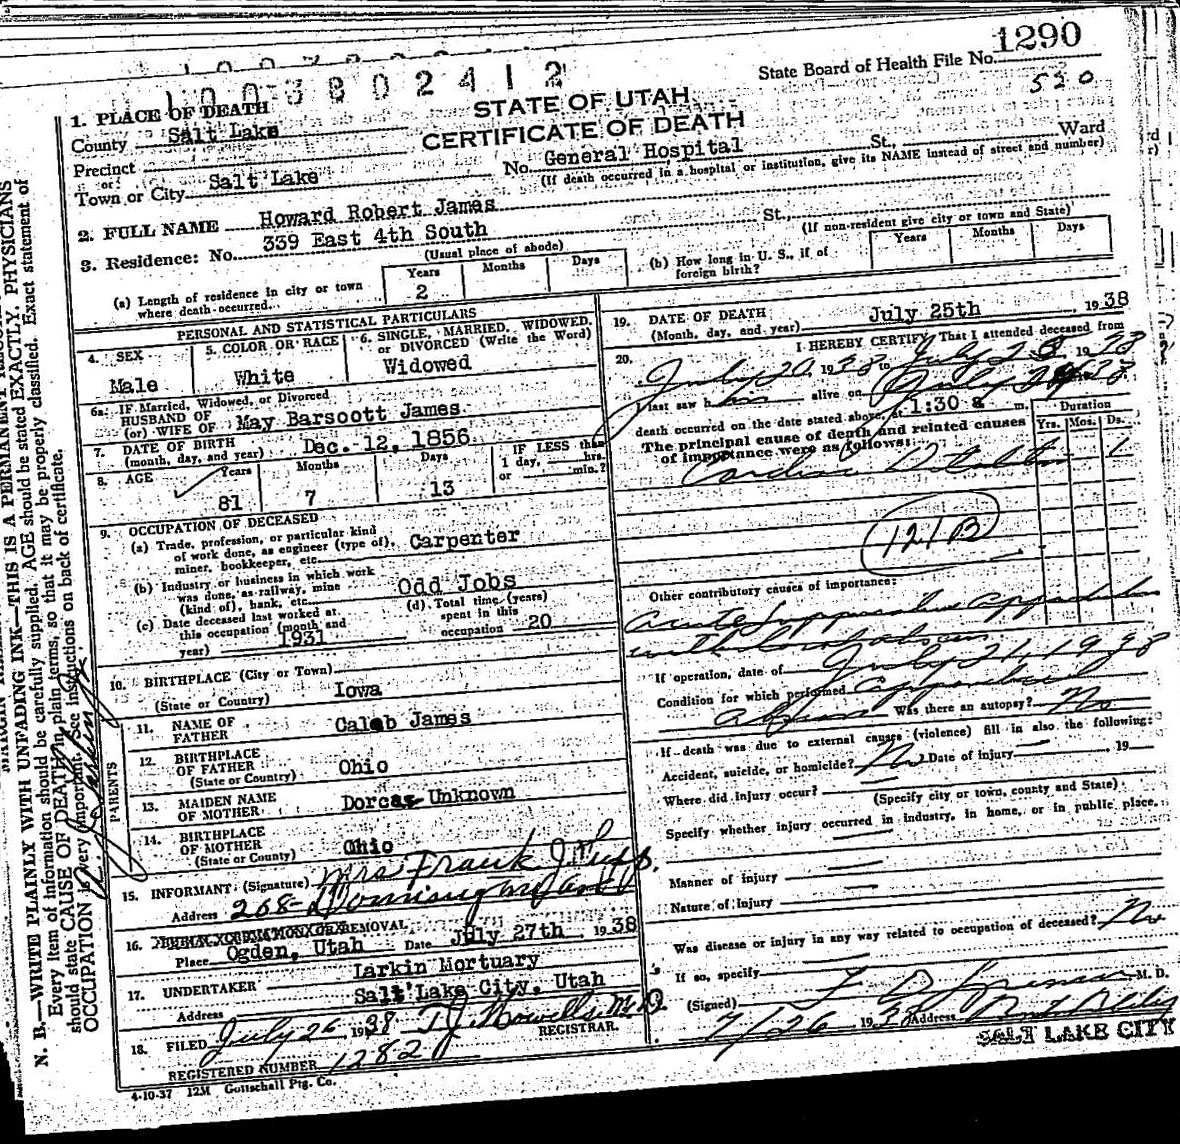 1290
State Board of Health File No.
520
1003802412
STATE OF UTAH
CERTIFICATE OF DEATH
1. PLACE OF DEATH
County Salt Lake
Precinct
or
Town or City Salt Lake No. General Hospital St., Ward
(If death occurred in a hospital or institution, give its NAME instead of street and number)
2. FULL NAME Howard Robert James
3. Residence: No. 339 East 4th South St.,
(Usual place of abode) (If non-resident give city or town and State)
(a) Length of residence in city or town where death occurred. Years 2 Months Days
(b) How long in U. S., if of foreign birth? Years Months Days
PERSONAL AND STATISTICAL PARTICULARS
4. SEX Male
5. COLOR OR RACE White
6. SINGLE, MARRIED, WIDOWED, or DIVORCED (Write the Word) Widowed
6a. IF Married, Widowed, or Divorced
HUSBAND OF
(or) WIFE OF May Barscott James
7. DATE OF BIRTH
(month, day, and year) Dec. 12, 1856
8. AGE Years 81 Months 7 Days 13 IF LESS than 1 day, hrs. or min.?
9. OCCUPATION OF DECEASED
(a) Trade, profession, or particular kind of work done, as engineer (type of), miner, bookkeeper, etc. Carpenter
(b) Industry or business in which work was done, as railway, mine (kind of), bank, etc. Odd Jobs
(c) Date deceased last worked at this occupation (month and year) 1931
(d) Total time (years) spent in this occupation 20
10. BIRTHPLACE (City or Town)
(State or Country) Iowa
PARENTS
11. NAME OF FATHER Caleb James
12. BIRTHPLACE OF FATHER
(State or Country) Ohio
13. MAIDEN NAME OF MOTHER Dorcas Unknown
14. BIRTHPLACE OF MOTHER
(State or Country) Ohio
15. INFORMANT (Signature) Mrs Frank J.
Address 268
16. BURIAL, CREMATION OR REMOVAL
Place Ogden, Utah Date July 27th 1938
17. UNDERTAKER Larkin Mortuary
Address Salt Lake City, Utah
18. FILED July 26 1938 T.J. Howells M.D.
REGISTRAR.
REGISTERED NUMBER 1282
4-10-37 12M Gottschall Ptg. Co.
19. DATE OF DEATH
(Month, day, and year) July 25th, 1938
20. I HEREBY CERTIFY That I attended deceased from
July 20, 1938 to July 25, 1938
I last saw him alive on July 1938
death occurred on the date stated above, at 1:30 a m.
The principal cause of death and related causes of importance were as follows:
Duration
Yrs. Mos. Ds.
Cardiac Dilatation 1
121B
Other contributory causes of importance:
Acute Suppurative appendicitis
with
If operation, date of July 21, 1938
Condition for which performed
Was there an autopsy? No
If death was due to external causes (violence) fill in also the following:
Accident, suicide, or homicide? No Date of injury , 19
Where did injury occur?
(Specify city or town, county and State)
Specify whether injury occurred in industry, in home, or in public place.
Manner of injury
Nature of injury
Was disease or injury in any way related to occupation of deceased? No
If so, specify
(Signed) M. D.
7/26 1938 Address
SALT LAKE CITY
N. B.—WRITE PLAINLY WITH UNFADING INK—THIS IS A PERMANENT
Every item of information should be carefully supplied. AGE should be stated EXACTLY. PHYSICIANS
should state CAUSE OF DEATH in plain terms, so that it may be properly classified. Exact statement of
OCCUPATION is very important. See instructions on back of certificate.